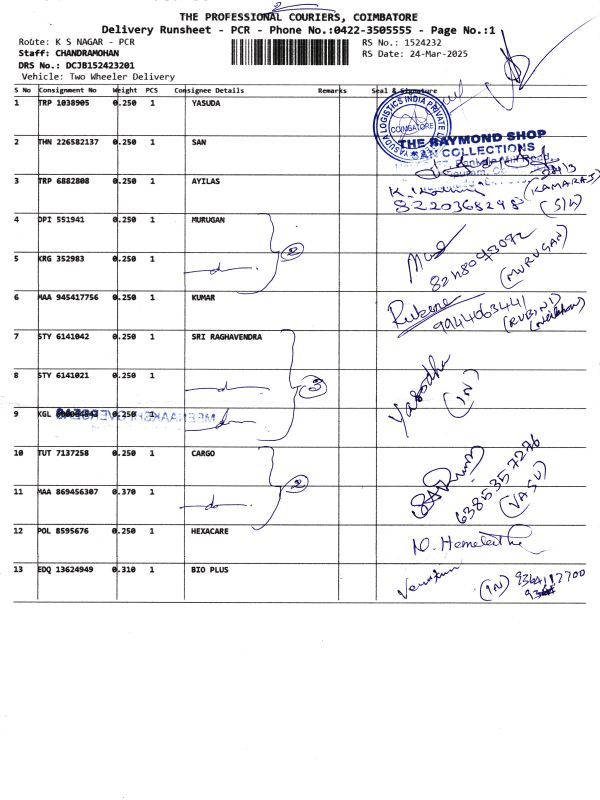 2
THE PROFESSIONAL COURIERS, COIMBATORE
Delivery Runsheet - PCR - Phone No.:0422-3505555 - Page No.:1
Route: K S NAGAR - PCR
RS No.: 1524232
Staff: CHANDRAMOHAN
RS Date: 24-Mar-2025
DRS No.: DCJB152423201
Vehicle: Two Wheeler Delivery
S No Consignment No Weight PCS Consignee Details Remarks Seal & Signature
1 TRP 1038905 0.250 1 YASUDA
YASUDA LOGISTICS INDIA PRIVATE
COIMBATORE
2 THN 226582137 0.250 1 SAN
THE RAYMOND SHOP
SAN COLLECTIONS
3 TRP 6882808 0.250 1 AYILAS
8220368298 (KAMARAJ) (S/W)
4 DPI 551941 0.250 1 MURUGAN
2
5 KRG 352983 0.250 1 do
8248043072 (MURUGAN)
6 MAA 945417756 0.250 1 KUMAR
9944063441 (RUBINI)
7 STY 6141042 0.250 1 SRI RAGHAVENDRA
8 STY 6141021 0.250 1 do
3
Yasodha (IN)
9 KGL 0.250 1 do
10 TUT 7137258 0.250 1 CARGO
2
11 MAA 869456307 0.370 1 do
6385357276 (VASU)
12 POL 8595676 0.250 1 HEXACARE
13 EDQ 13624949 0.310 1 BIO PLUS
(IN) 9364112700